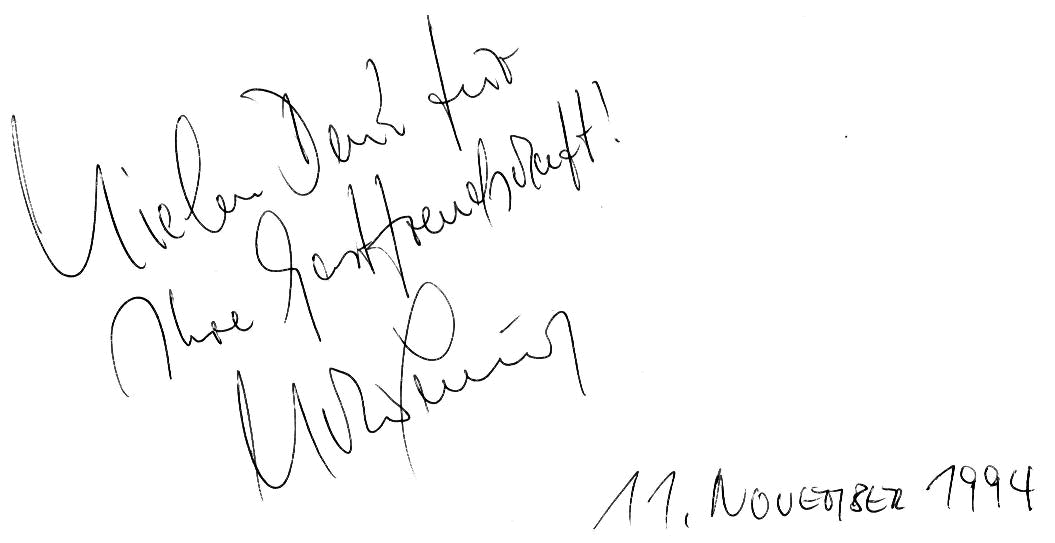 Vielen Dank für
Ihre Gastfreundschaft!
11. NOVEMBER 1994